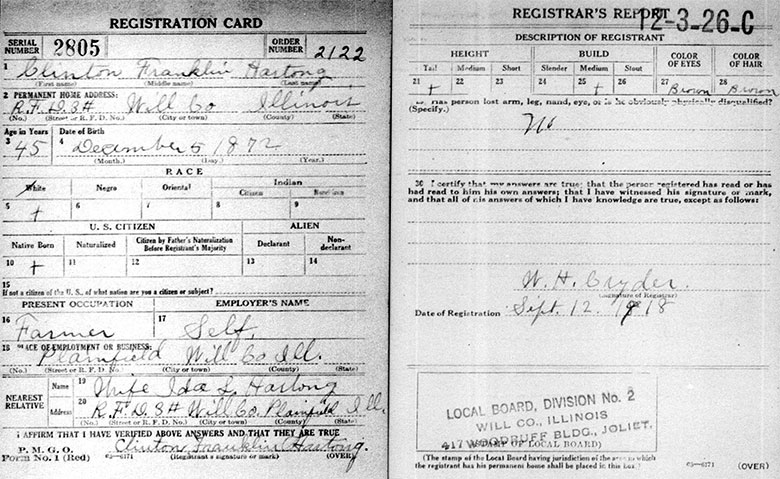 REGISTRATION CARD
SERIAL NUMBER 2805 ORDER NUMBER 2122
1 Clinton Franklin Hartong
(First name) (Middle name) (Last name)
2 PERMANENT HOME ADDRESS:
R.F.D. S# Will Co Illinois
(No.) (Street or R. F. D. No.) (City or town) (County) (State)
Age in Years Date of Birth
3 45 4 December 5 1872
(Month.) (Day.) (Year.)
RACE
White Negro Oriental Indian
Citizen
5 + 6 7 8 9
U. S. CITIZEN ALIEN
Native Born Naturalized Citizen by Father's Naturalization Before Registrant's Majority Declarant Non-declarant
10 + 11 12 13 14
15
If not a citizen of the U. S., of what nation are you a citizen or subject?
PRESENT OCCUPATION EMPLOYER'S NAME
16 Farmer 17 Self,
18 PLACE OF EMPLOYMENT OR BUSINESS:
Plainfield Will Co Ill.
(No.) (Street or R. F. D. No.) (City or town) (County) (State)
NEAREST RELATIVE
Name 19 Wife Ida L Hartong
Address 20 R.F.D. S# Will Co. Plainfield Ill
(No.) (Street or R. F. D. No.) (City or town) (County) (State)
I AFFIRM THAT I HAVE VERIFIED ABOVE ANSWERS AND THAT THEY ARE TRUE
P. M. G. O.
Form No. 1 (Red) 03-6171 Clinton Franklin Hartong.
(Registrant's signature or mark) (OVER)
REGISTRAR'S REPORT 12-3-26-C
DESCRIPTION OF REGISTRANT
HEIGHT BUILD COLOR OF EYES COLOR OF HAIR
Tall Medium Short Slender Medium Stout
21 + 22 23 24 25 + 26 27 Brown 28 Brown
29 Has person lost arm, leg, hand, eye, or is he obviously physically disqualified?
(Specify.)
No
30 I certify that my answers are true; that the person registered has read or has
had read to him his own answers; that I have witnessed his signature or mark,
and that all of his answers of which I have knowledge are true, except as follows:
W. H. Cryder.
(Signature of Registrar)
Date of Registration Sept. 12. 1918
LOCAL BOARD, DIVISION No. 2
WILL CO., ILLINOIS
417 WOODRUFF BLDG., JOLIET,
(STAMP OF LOCAL BOARD)
(The stamp of the Local Board having jurisdiction of the area in which
the registrant has his permanent home shall be placed in this box.)
03-6171 (OVER)